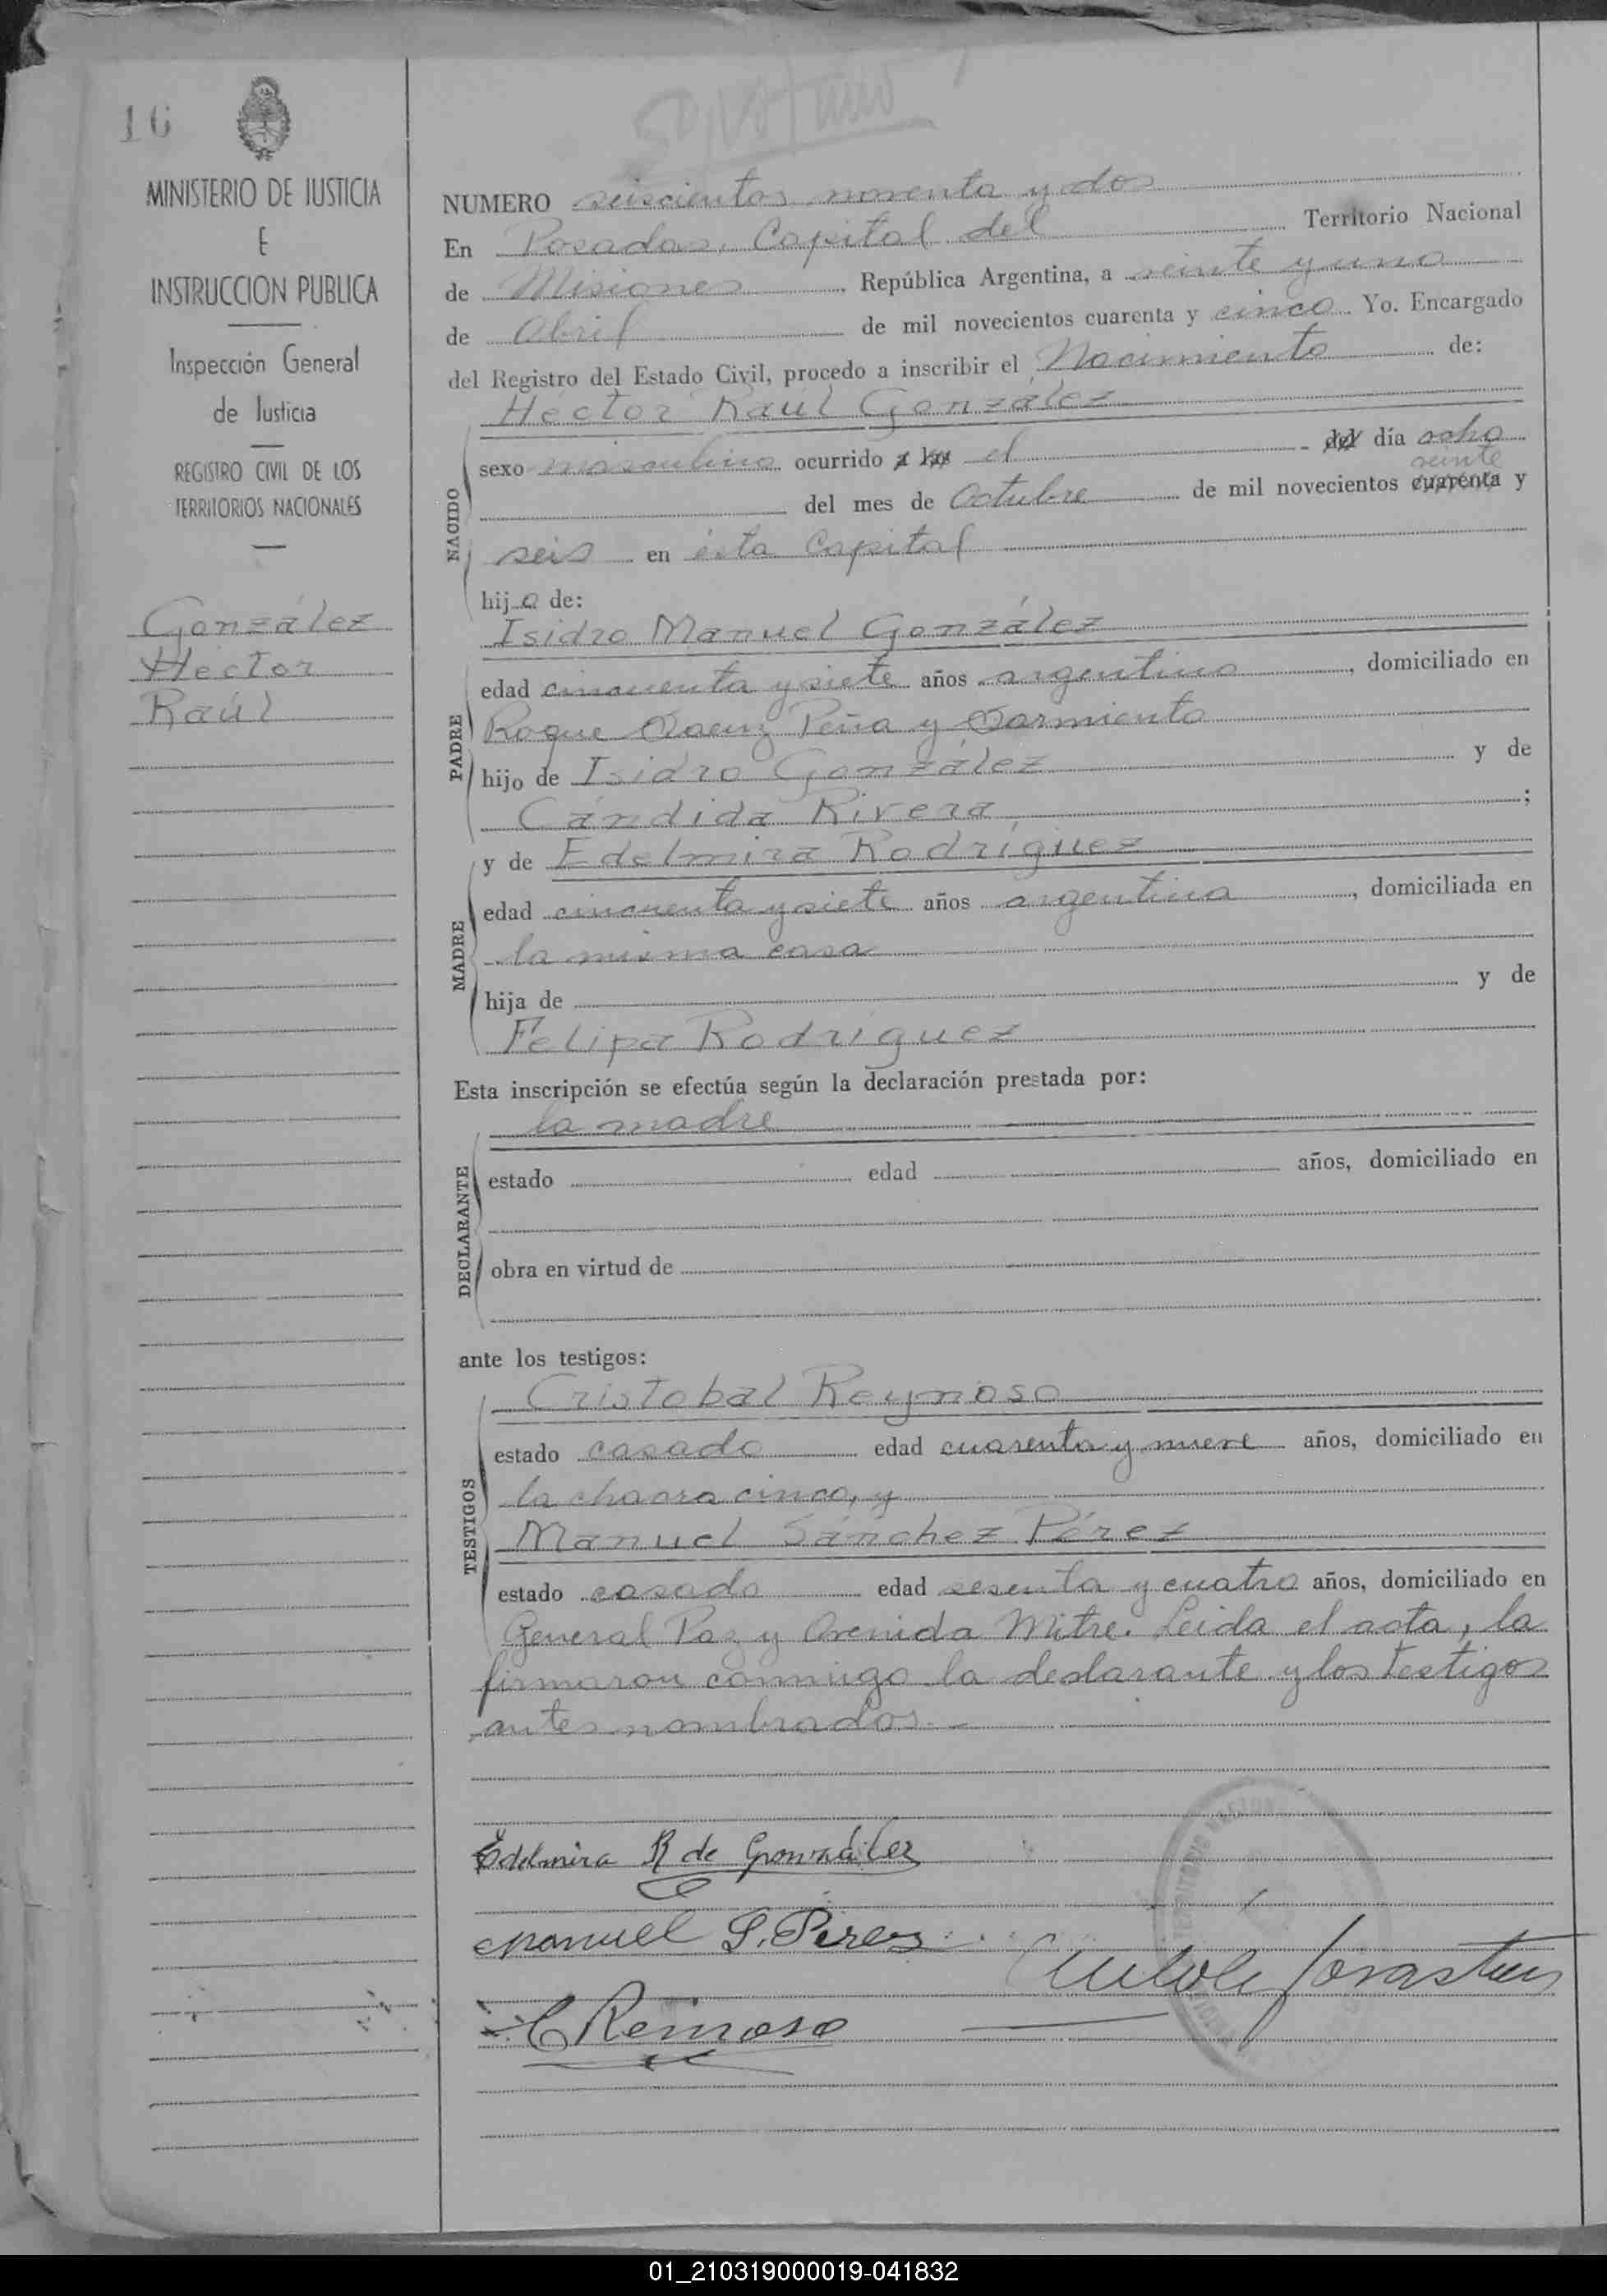 16
MINISTERIO DE JUSTICIA
E
INSTRUCCION PUBLICA
Inspección General
de Justicia
REGISTRO CIVIL DE LOS
TERRITORIOS NACIONALES
González
Héctor
Raúl
NUMERO seiscientos noventa y dos
En Posadas, Capital del Territorio Nacional
de Misiones República Argentina, a veinte y uno
de Abril de mil novecientos cuarenta y cinco Yo. Encargado
del Registro del Estado Civil, procedo a inscribir el Nacimiento de:
Héctor Raúl González
NACIDO
sexo masculino ocurrido a las el del día ocho
veinte
del mes de Octubre de mil novecientos cuarenta y
seis en ésta Capital
hijo de:
Isidro Manuel González
PADRE
edad cincuenta y siete años argentino, domiciliado en
Roque Saenz Peña y Sarmiento
hijo de Isidro González y de
Cándida Rivera;
MADRE
y de Edelmira Rodríguez
edad cincuenta y siete años argentina, domiciliada en
la misma casa
hija de y de
Felipa Rodríguez
Esta inscripción se efectúa según la declaración prestada por:
la madre
DECLARANTE
estado edad años, domiciliado en
obra en virtud de
ante los testigos:
TESTIGOS
Cristobal Reynoso
estado casado edad cuarenta y nueve años, domiciliado en
la chacra cinco, y
Manuel Sánchez Pérez
estado casado edad sesenta y cuatro años, domiciliado en
General Paz y Avenida Mitre. Leida el acta, la
firmaron conmigo la declarante y los testigos
antes nombrados.-
Edelmira R de González
Manuel S. Pérez
C Reinoso
01_210319000019-041832